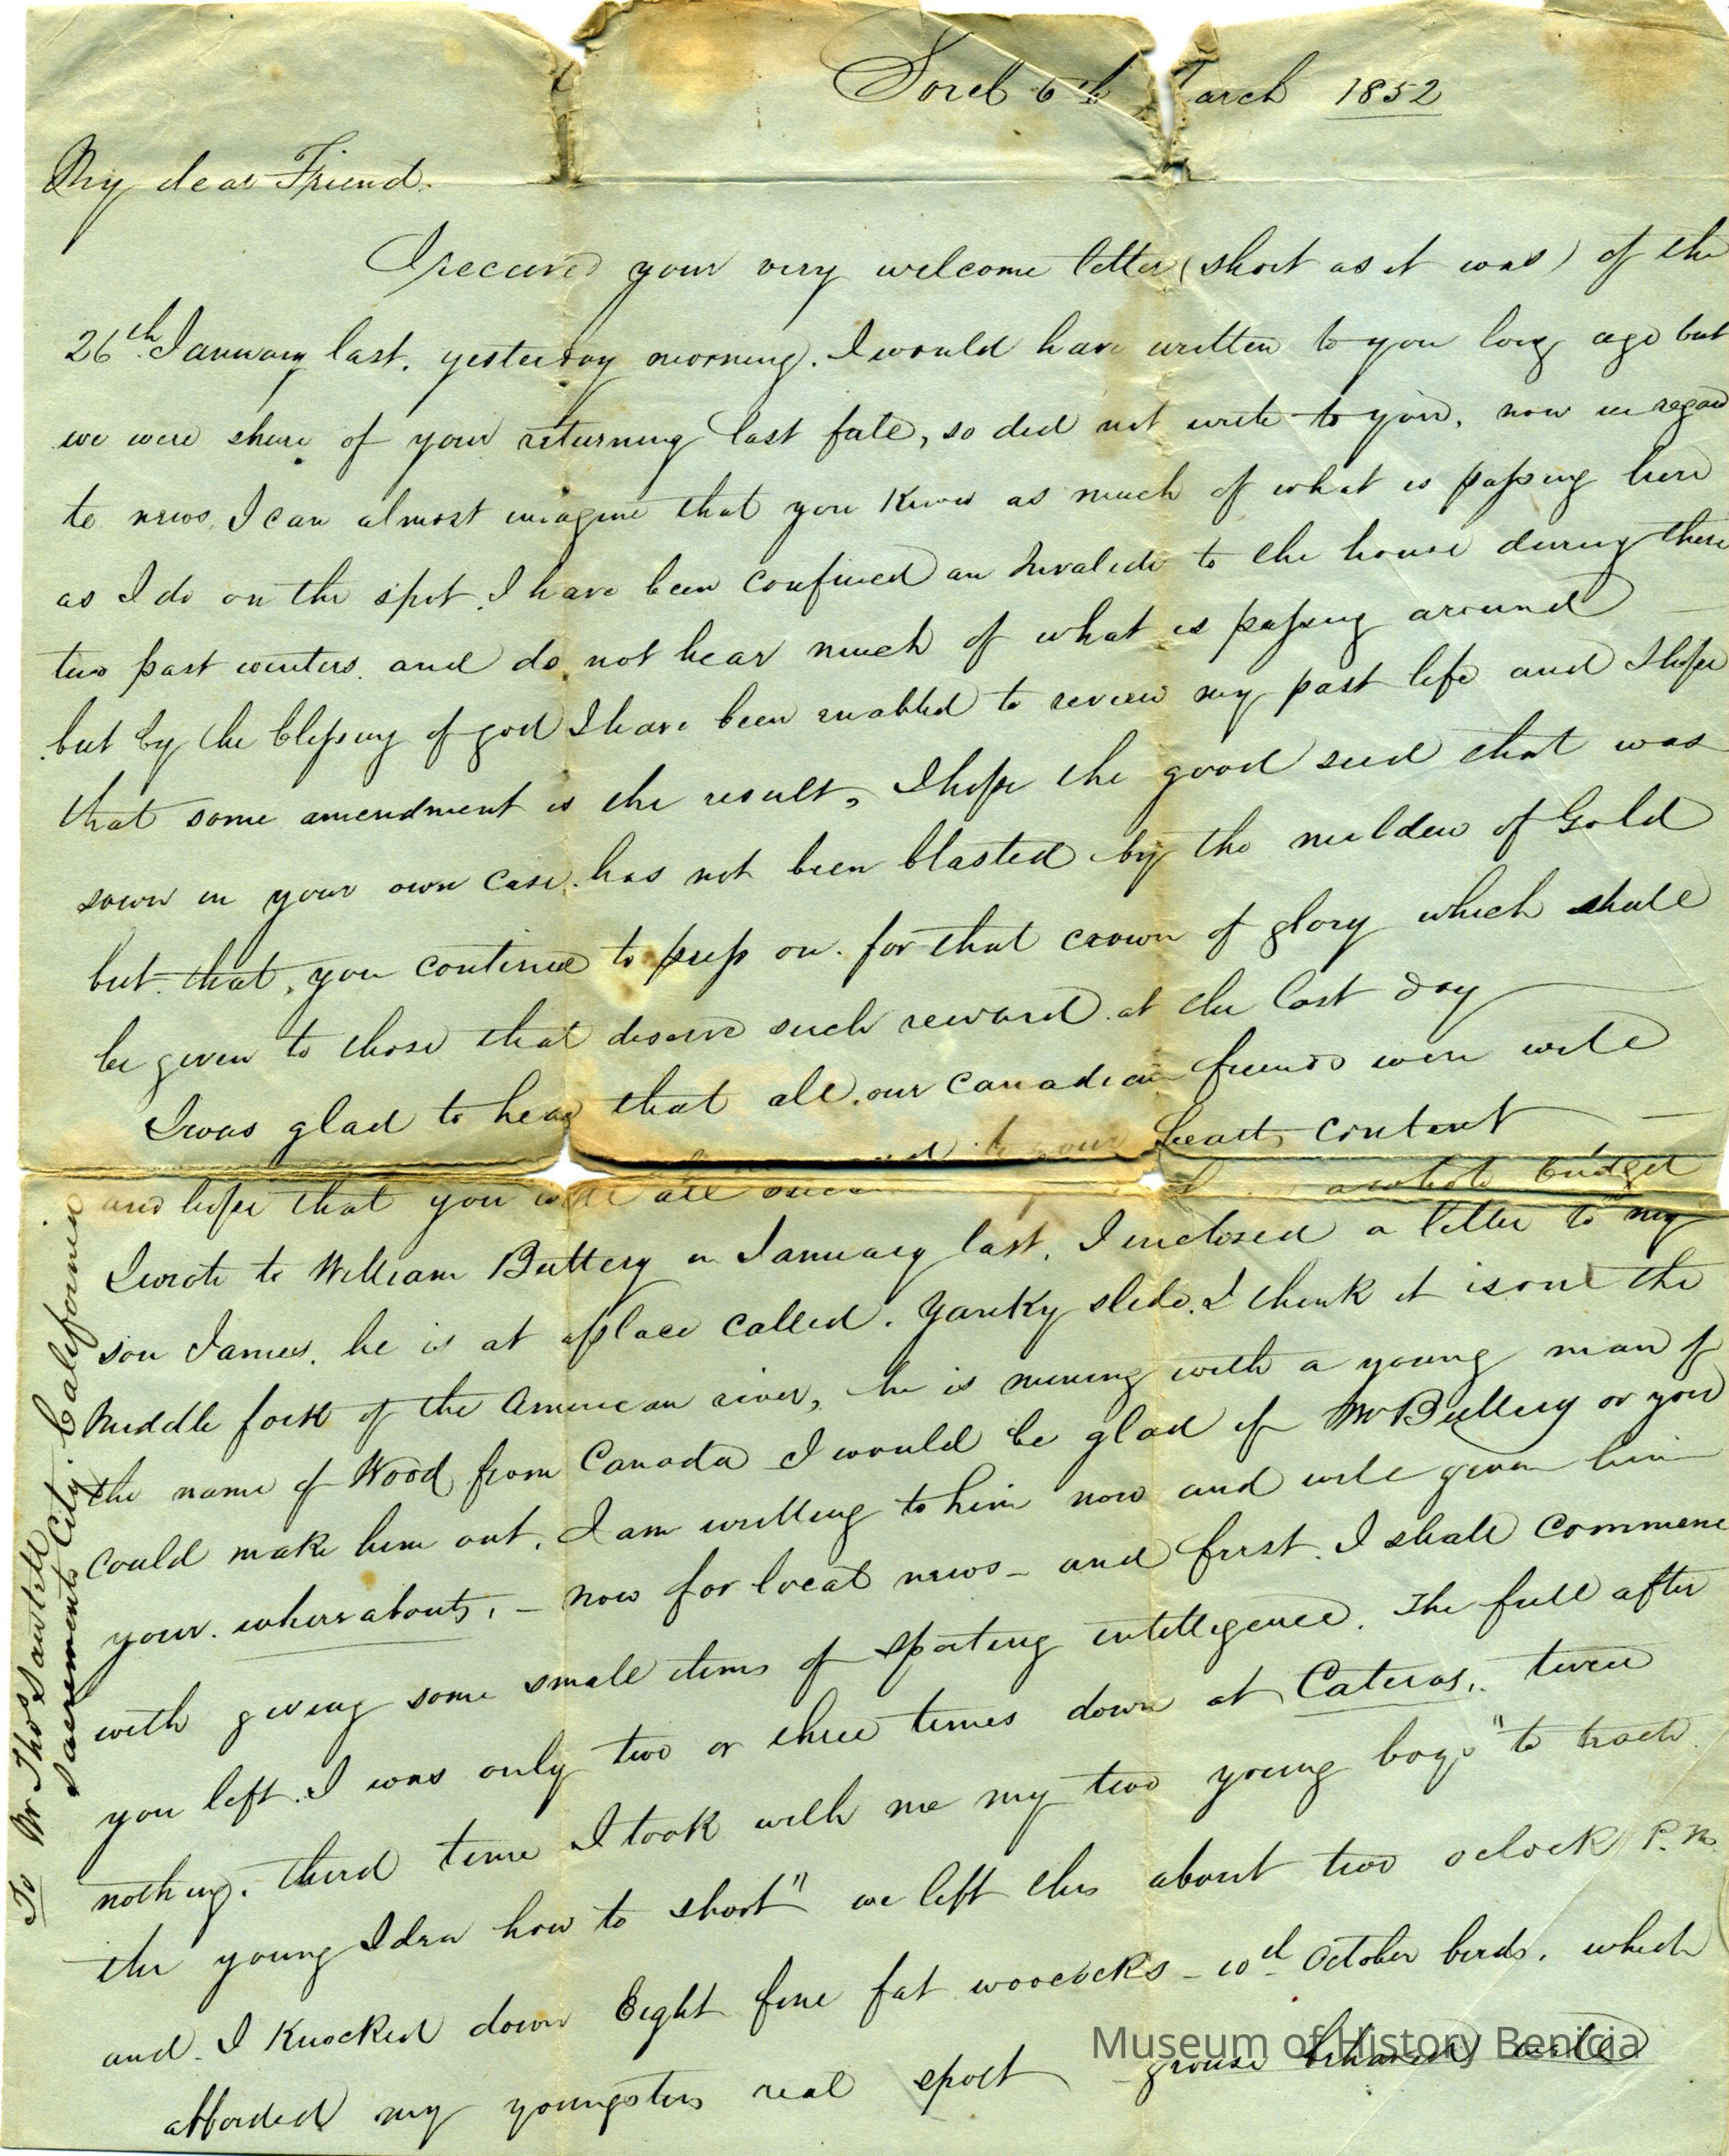 Sorel 6th arch 1852
My dear Friend.
I received your very welcome letter (short as it was) of the
26th January last. yesterday morning. I would have written to you long ago but
we were shure of your returning last fall, so did not write to you, now in regard
to news, I can almost imagine that you know as much of what is passing here
as I do on the spot. I have been confined an Invalide to the house during these
two past winters. and do not hear much of what is passing around
but by the blessing of god I have been enabled to review my past life and I hope
that some amendment is the result, I hope the good seed that was
sown in your own case. has not been blasted by the mildew of Gold
but that, you continue to press on. for that crown of glory which shall
be given to those that deserve such reward at the last day
I was glad to hear that all our Canadian friends were well
and hope that you will all your hearts content
a whole budget
I wrote to William Buttery in January last. I enclosed a letter to my
son James. he is at a place called. Yanky slide. I think it is on the
Middle fork of the American river, he is mining with a young man of
the name of Wood from Canada I would be glad if Mr Buttery or you
could make him out. I am writting to him now and will given him
your. whereabouts, - now for local news - and first. I shall commence
with giving some small items of sporting intelligence. The fall after
you left. I was only two or three times down at Cateras,. twice
nothing. third time I took with me my two young boys "to teach
the young Idea how to shoot" we left this about two oclock P.M.
and. I knocked down Eight fine fat woodcocks - October birds. which
afforded my youngsters real sport grouse behaved
To Mr Thos Sawtell
Sacremento City. California
Museum of History Benicia